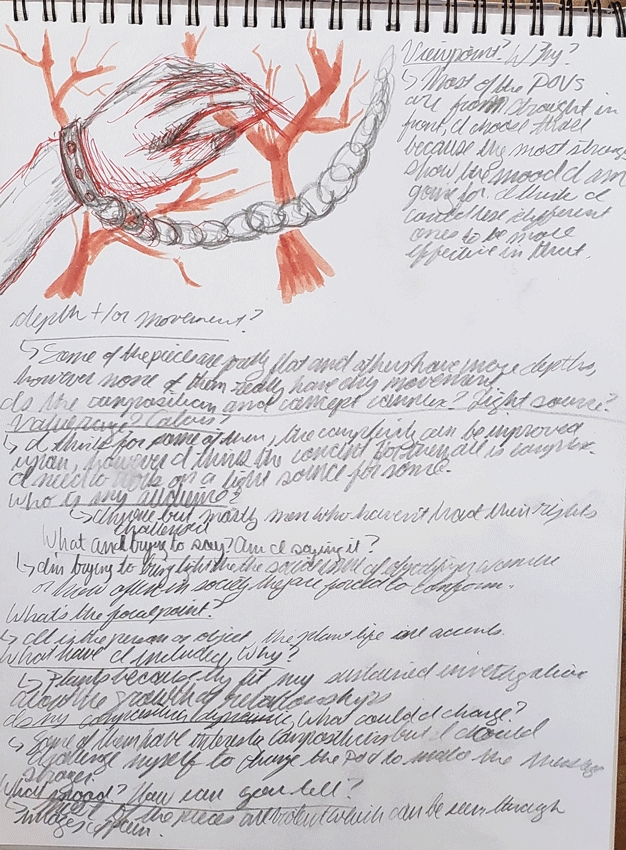 Viewpoint? Why?
↳ Most of the POVs
are from straight in
front, I choose these
because the most strongly
show the mood I am
going for. I think I
could use different
ones to be more
effective in that.
depth +/or movement?
↳ Some of the pieces are pretty flat and others have more depths,
however none of them really have any movement
Is the composition and concept complex? Light source?
Value range? Colors?
↳ I think for some of them, the complexity can be improved
upon, however I think the concept for them all is complex.
I need to on a light source for some.
who is my audience?
↳ anyone but mostly men who haven't had their rights
challenged
What am I trying to say? Am I saying it?
↳ I'm trying to bring light the the of women
or how often in society they are forced to conform.
What's the focal point?
↳ All is the person or object, the plant life are accents.
What have I included, Why?
↳ Plants because they fit my sustained investigation
the growth of relationships
Is my composition dynamic, What could I change?
↳ Some of them have interesting compositions but I could
challenge myself to change the POV to make the message
stronger.
What mood? How can you tell?
↳ Most of the pieces are violent which can be seen through
images